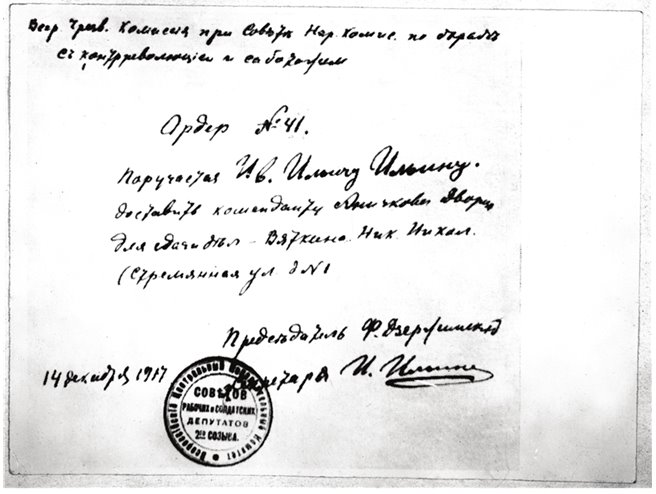 Всер. Чрезв. Комиссия при Совѣтѣ Нар. Комис. по борьбѣ
съ контрреволюціей и саботажем
Ордер № 41.
Поручается Ив. Ильичу Ильину.
доставить коменданту Аничкова Дворца
для сдачи дѣл - Вяткина Ник. Никол.
(Стремянная ул д №1
Председатель Ф. Дзержинский
14 декабря 1917 Секретарь И. Ильин
Всероссійскій Центральный Исполнительный Комитет
СОВѢТОВ
РАБОЧИХ и СОЛДАТСКИХ
ДЕПУТАТОВ
2го СОЗЫВА.